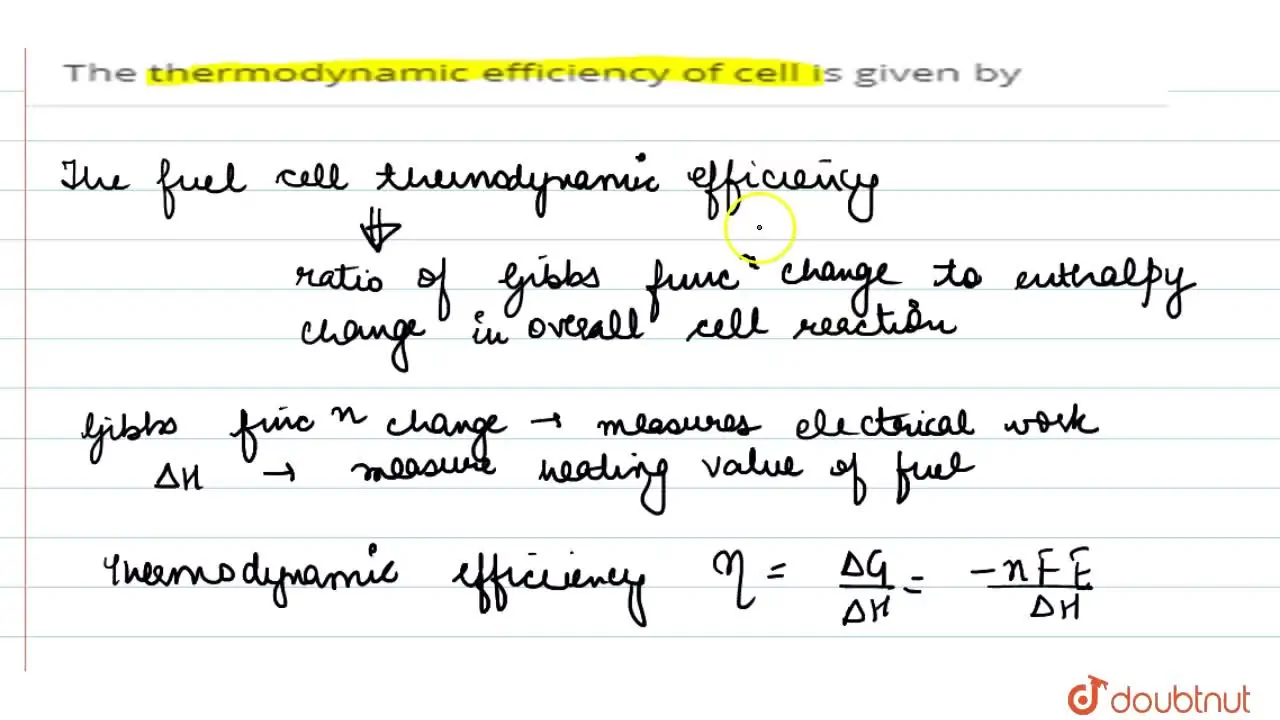 The thermodynamic efficiency of cell is given by
The fuel cell thermodynamic efficiency
⇓
ratio of Gibbs funcⁿ change to enthalpy
change in overall cell reaction
Gibbs funcⁿ change → measures electrical work
ΔH → measure heating value of fuel
Thermodynamic efficiency η = ΔG/ΔH = -nFE/ΔH
doubtnut